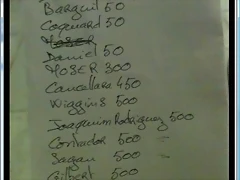 Barguil 50
Coquard 50
Daniel 50
MOSER 300
Cancellara 450
Wiggins 500
Joaquim Rodriguez 500
Contador 500
Sagan 500
Gilbert 500